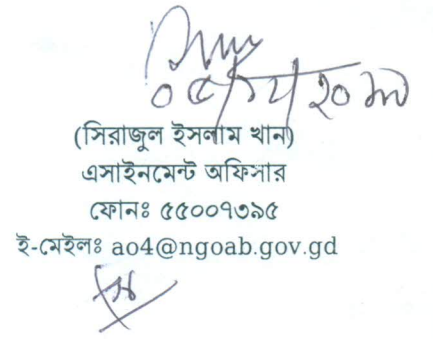 (সিরাজুল ইসলাম খান)
এসাইনমেন্ট অফিসার
ফোনঃ ৫৫০০৭৩৯৫
ই-মেইলঃ ao4@ngoab.gov.gd